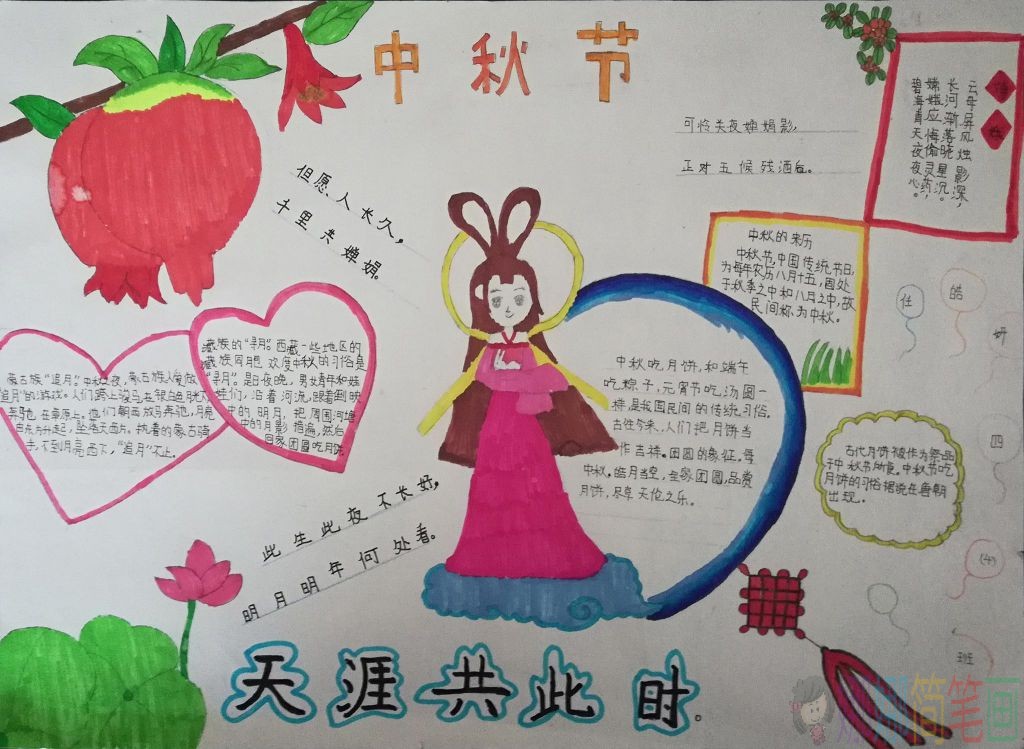 中秋节
但愿人长久，
千里共婵娟。
可怜关夜婵娟影，
正对五候残酒卮。
云母屏风烛影深，
长河渐落晓星沉。
嫦娥应悔偷灵药，
碧海青天夜夜心。
中秋的来历
中秋节，中国传统节日，
为每年农历八月十五，因处
于秋季之中和八月之中，故
民间称为中秋。
任
皓
妍
四
(4)
班
蒙古族“追月”。中秋之夜，蒙古族人爱做
“追月”的游戏。人们跨上骏马，在银白色月光下
奔驰在草原上。他们朝西放马奔驰，月亮
由东方升起，坠落天西方。执着的蒙古骑
手，不到月亮西下，“追月”不止。
藏族的“寻月”。西藏一些地区的
藏族同胞欢度中秋的习俗是
“寻月”。是日夜晚，男女青年和娃
娃们，沿着河流，跟着倒映
中的明月，把周围河塘
中的月影捎遍，然后
回家团圆吃月饼。
中秋吃月饼，和端午
吃粽子，元宵节吃汤圆一
样，是我国民间的传统习俗。
古往今来，人们把月饼当
作吉祥。团圆的象征。每
中秋。皓月当空，全家团圆，品赏
月饼，尽享天伦之乐。
古代月饼被作为祭品
于中秋节所食。中秋节吃
月饼的习俗据说在唐朝
出现。
此生此夜不长好，
明月明年何处看。
天涯共此时。
简笔画